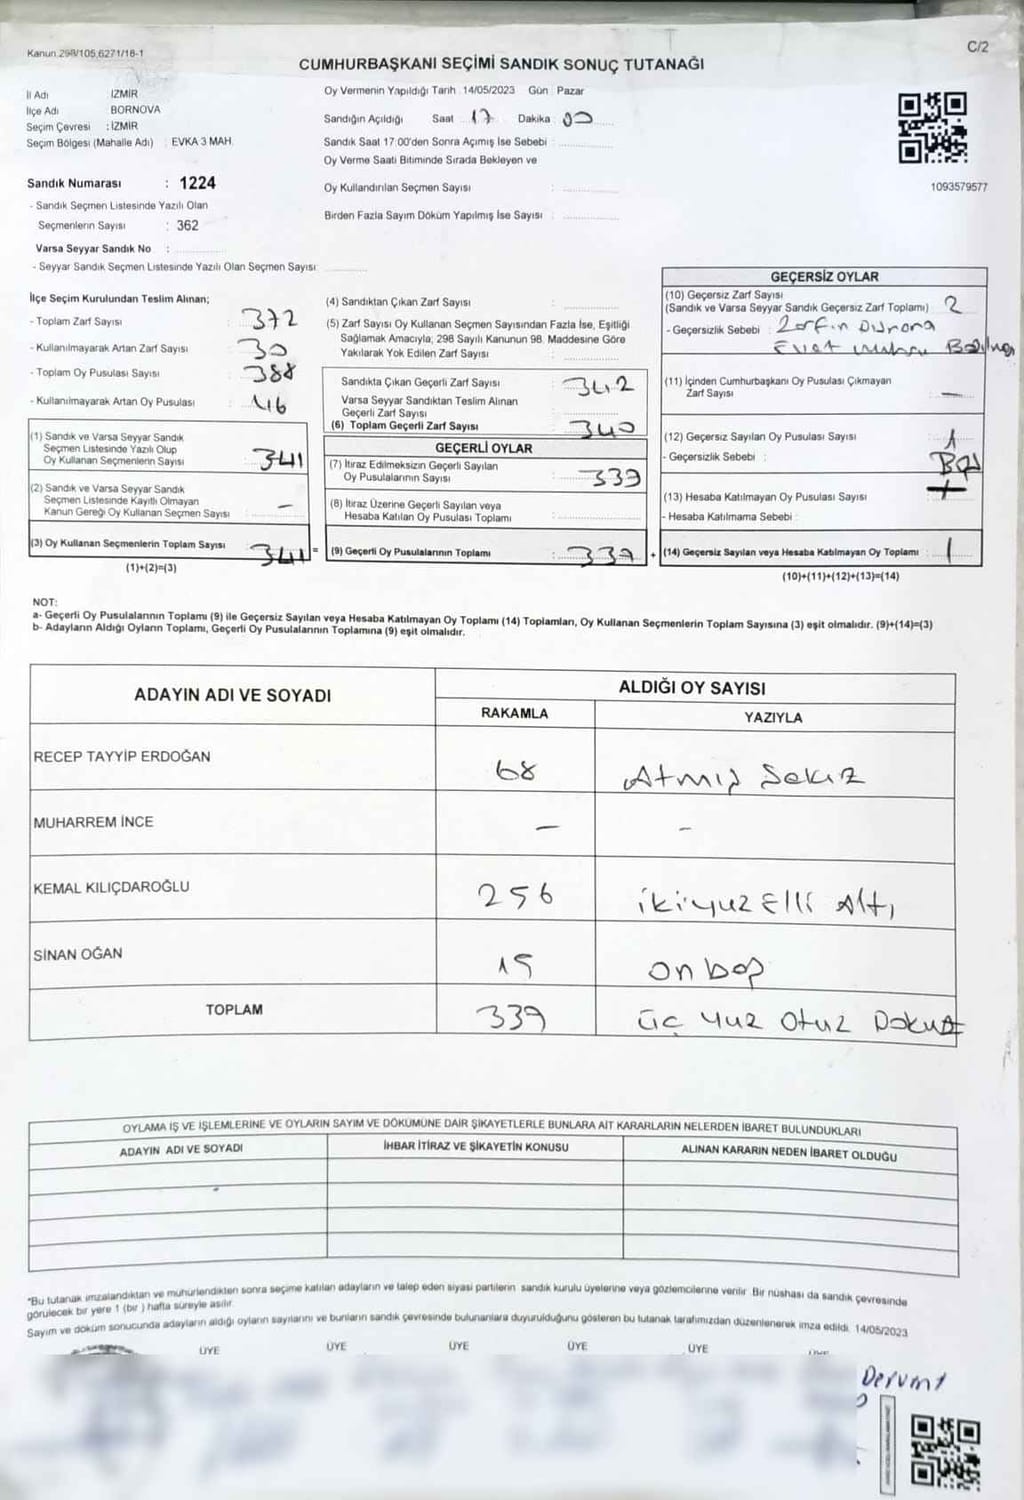 Kanun.298/105,6271/18-1
C/2
CUMHURBAŞKANI SEÇİMİ SANDIK SONUÇ TUTANAĞI
İl Adı : İZMİR
İlçe Adı : BORNOVA
Seçim Çevresi : İZMİR
Seçim Bölgesi (Mahalle Adı) : EVKA 3 MAH.
Sandık Numarası : 1224
- Sandık Seçmen Listesinde Yazılı Olan
Seçmenlerin Sayısı : 362
Varsa Seyyar Sandık No :
- Seyyar Sandık Seçmen Listesinde Yazılı Olan Seçmen Sayısı:
Oy Vermenin Yapıldığı Tarih : 14/05/2023 Gün : Pazar
Sandığın Açıldığı Saat : 17 Dakika : 00
Sandık Saat 17:00'den Sonra Açımış İse Sebebi :
Oy Verme Saati Bitiminde Sırada Bekleyen ve
Oy Kullandırılan Seçmen Sayısı :
Birden Fazla Sayım Döküm Yapılmış İse Sayısı :
1093579577
İlçe Seçim Kurulundan Teslim Alınan;
- Toplam Zarf Sayısı : 372
- Kullanılmayarak Artan Zarf Sayısı : 30
- Toplam Oy Pusulası Sayısı : 388
- Kullanılmayarak Artan Oy Pusulası : 46
(1) Sandık ve Varsa Seyyar Sandık
Seçmen Listesinde Yazılı Olup
Oy Kullanan Seçmenlerin Sayısı : 341
(2) Sandık ve Varsa Seyyar Sandık
Seçmen Listesinde Kayıtlı Olmayan
Kanun Gereği Oy Kullanan Seçmen Sayısı : -
(3) Oy Kullanan Seçmenlerin Toplam Sayısı : 341 =
(1)+(2)=(3)
(4) Sandıktan Çıkan Zarf Sayısı :
(5) Zarf Sayısı Oy Kullanan Seçmen Sayısından Fazla İse, Eşitliği
Sağlamak Amacıyla; 298 Sayılı Kanunun 98. Maddesine Göre
Yakılarak Yok Edilen Zarf Sayısı :
Sandıkta Çıkan Geçerli Zarf Sayısı : 342
Varsa Seyyar Sandıktan Teslim Alınan
Geçerli Zarf Sayısı :
(6) Toplam Geçerli Zarf Sayısı : 340
GEÇERLİ OYLAR
(7) İtiraz Edilmeksizin Geçerli Sayılan
Oy Pusulalarının Sayısı : 339
(8) İtiraz Üzerine Geçerli Sayılan veya
Hesaba Katılan Oy Pusulası Toplamı :
(9) Geçerli Oy Pusulalarının Toplamı : 339 +
GEÇERSİZ OYLAR
(10) Geçersiz Zarf Sayısı
(Sandık ve Varsa Seyyar Sandık Geçersiz Zarf Toplamı) : 2
- Geçersizlik Sebebi : Zarfın
Evet
(11) İçinden Cumhurbaşkanı Oy Pusulası Çıkmayan
Zarf Sayısı : -
(12) Geçersiz Sayılan Oy Pusulası Sayısı : 1
- Geçersizlik Sebebi :
(13) Hesaba Katılmayan Oy Pusulası Sayısı :
- Hesaba Katılmama Sebebi :
(14) Geçersiz Sayılan veya Hesaba Katılmayan Oy Toplamı : 1
(10)+(11)+(12)+(13)=(14)
NOT:
a- Geçerli Oy Pusulalarının Toplamı (9) ile Geçersiz Sayılan veya Hesaba Katılmayan Oy Toplamı (14) Toplamları, Oy Kullanan Seçmenlerin Toplam Sayısına (3) eşit olmalıdır. (9)+(14)=(3)
b- Adayların Aldığı Oyların Toplamı, Geçerli Oy Pusulalarının Toplamına (9) eşit olmalıdır.
ADAYIN ADI VE SOYADI
ALDIĞI OY SAYISI
RAKAMLA YAZIYLA
RECEP TAYYİP ERDOĞAN 68 Atmış Sekiz
MUHARREM İNCE - -
KEMAL KILIÇDAROĞLU 256 ikiyuz Elli Altı
SİNAN OĞAN 15 on beş
TOPLAM 339 üç yuz Otuz Dokuz
OYLAMA İŞ VE İŞLEMLERİNE VE OYLARIN SAYIM VE DÖKÜMÜNE DAİR ŞİKAYETLERLE BUNLARA AİT KARARLARIN NELERDEN İBARET BULUNDUKLARI
ADAYIN ADI VE SOYADI İHBAR İTİRAZ VE ŞİKAYETİN KONUSU ALINAN KARARIN NEDEN İBARET OLDUĞU
*Bu tutanak imzalandıktan ve mühürlendikten sonra seçime katılan adayların ve talep eden siyasi partilerin sandık kurulu üyelerine veya gözlemcilerine verilir. Bir nüshası da sandık çevresinde
görülecek bir yere 1 (bir) hafta süreyle asılır.
Sayım ve döküm sonucunda adayların aldığı oyların sayılarını ve bunların sandık çevresinde bulunanlara duyurulduğunu gösteren bu tutanak tarafımızdan düzenlenerek imza edildi. 14/05/2023
ÜYE ÜYE ÜYE ÜYE ÜYE